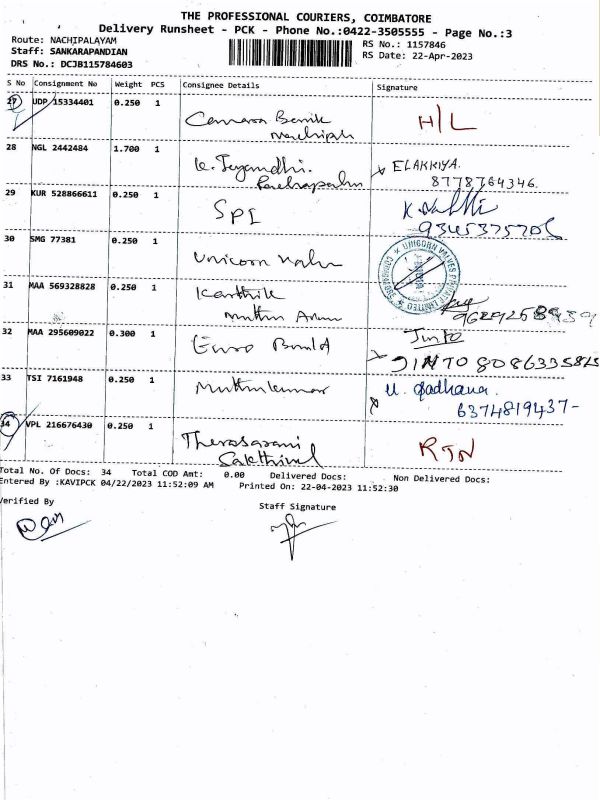 THE PROFESSIONAL COURIERS, COIMBATORE
Delivery Runsheet - PCK - Phone No.:0422-3505555 - Page No.:3
Route: NACHIPALAYAM
RS No.: 1157846
Staff: SANKARAPANDIAN
RS Date: 22-Apr-2023
DRS No.: DCJB115784603
S No Consignment No Weight PCS Consignee Details Signature
27 UDP 15334401 0.250 1 H/L
28 NGL 2442484 1.700 1 K. ELAKKIYA.
8778764346.
29 KUR 528866611 0.250 1 SPI K.
30 SMG 77381 0.250 1 Unicorn Valve UNICORN VALVES PRIVATE LIMITED
31 MAA 569328828 0.250 1 Karthik
Muthu
32 MAA 295609022 0.300 1 Euro Jinto
JINTO 8086335825
33 TSI 7161948 0.250 1 Muthukumar
6374819437-
34 VPL 216676430 0.250 1 RTN
Total No. Of Docs: 34 Total COD Amt: 0.00 Delivered Docs: Non Delivered Docs:
Entered By :KAVIPCK 04/22/2023 11:52:09 AM Printed On: 22-04-2023 11:52:30
Verified By
Staff Signature